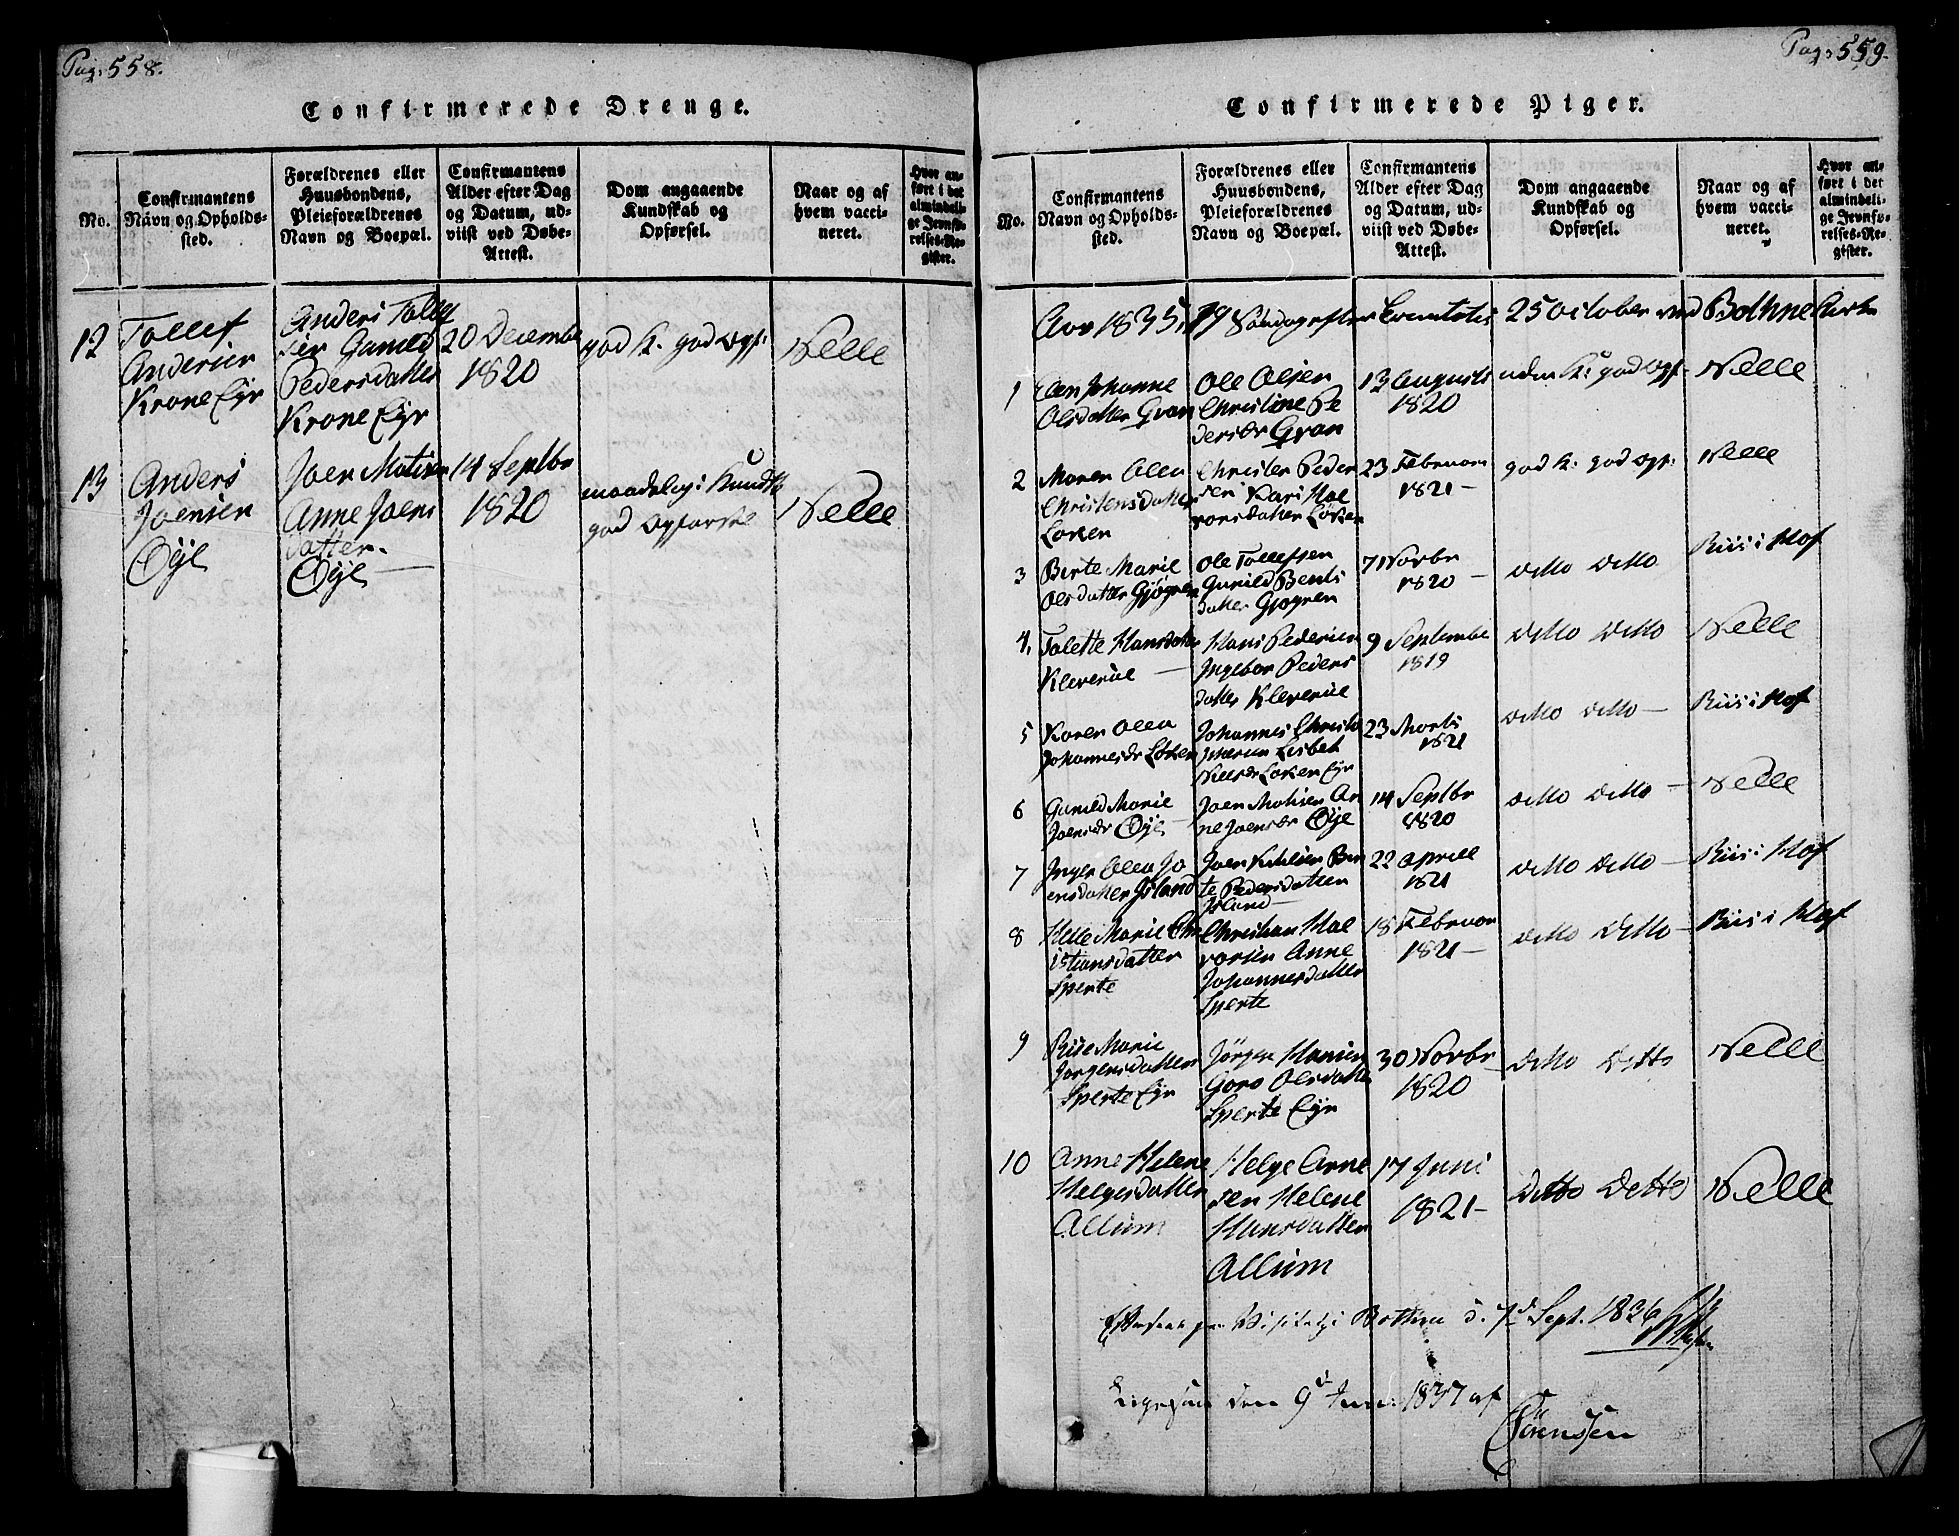 Pag. 558.
Confirmerede Drenge.
No.
Confirmantens Navn og Opholds-sted.
Forældrenes eller Huusbondens, Pleieforældrenes Navn og Boepæl.
Confirmantens Alder efter Dag og Datum, ud-viist ved Døbe-Attest.
Dom angaaende Kundskab og Opførsel.
Naar og af hvem vacci-neret.
Hvor an-ført i det almindeli-ge Jevnfø-relses-Re-gister.
12
Tollef
Andersen
Krone Ejr
Anders Tollef
sen Gunild
Pedersdatter
Krone Ejr
20 Decembe
1820
god K. god Opf:
Nelle
13
Anders
Joensen
Øÿe
Joen Matisen
Anne Joens
datter
Øÿe
14 Septbr
1820
maadelig i Kundsk
god Opførsel
Nelle
Pag. 559.
Confirmerede Piger.
No.
Confirmantens Navn og Opholds-sted.
Forældrenes eller Huusbondens, Pleieforældrenes Navn og Boepæl.
Confirmantens Alder efter Dag og Datum, ud-viist ved Døbe-Attest.
Dom angaaende Kundskab og Opførsel.
Naar og af hvem vacci-neret.
Hvor an-ført i det almindeli-ge Jevnfø-relses-Re-gister.
1835, 19 Søndag efter 25 October ved Bothne Kirke
1
Johanne
Olsdatter Gran
Ole Olsen
Christine Pe
dersdr Gran
13 Augusti
1820
K: god Opf.
Nelle
2
Maren Olea
Christensdatter
Løken
Christen Peder
sen Kari Hal
vorsdatter Løken
23 Februar
1821
god K: god Opf:
Nelle
3
Berte Marie
Olsdatter Gjøgren
Ole Tollefsen
Gunild Bents
datter Gjøgren
7 Novbr
1820
ditto ditto
Riis i Hof
4,
Tolette Hansdatter
Kleverüe
Hans Pedersen
Ingebor Peders
datter Kleverüe
9 Septembe
1819
ditto ditto
Nelle
5
Karen Olea
Johannesdr Løken
Johannes Christo
Lisbet
Nielsdr Løken Ejr
23 Marts
1821
ditto ditto
Riis i Hof
6
Gunild Marie
Joensdr Øÿe
Joen Matisen An
ne Joensdr Øÿe
14 Septbr
1820
ditto ditto
Nelle
7
Inger Olea Jo
ensdatter Island
Joen Ber
te Pedersdatter
Island
22 Aprill
1821
ditto ditto
Riis i Hof
8
Helle Marie Chr
istiansdatter
Sperte
Christian Hal
vorsen Anne
Johannesdatter
Sperte
18 Februar
1821
ditto ditto
Riis i Hof
9
Marie
Jørgensdatter
Sperte Ejr
Jørgen Hansen
Goro Olsdatter
Sperte Ejr
30 Novbr
1820
ditto ditto
Nelle
10
Anne Helene
Helgesdatter
Allum
Helge Arne
sen Helene
Hansdatter
Allum
17 Juni
1821
ditto ditto
Nelle
Efterseet paa Visitats i Bothne d. 7d Sept. 1836
Ligesaa den 9d Juni 1837 af
Sörenssen